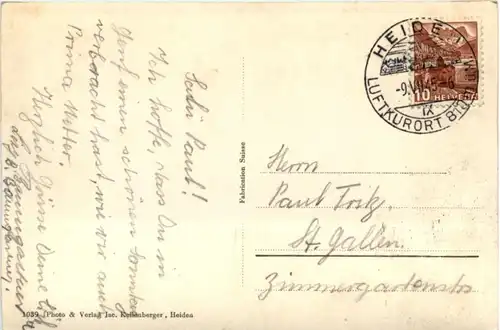 Salü Paul!
Ich hoffe, dass Du in
Genf einen schönen Sonntag
verbracht hast, wie wir auch
Prima Wetter.
Herzlich Grüsse Deine
1039 Photo & Verlag Jac. Kellenberger, Heiden
Fabrication Suisse
HEIDEN
-9.VII.
IX
LUFTKURORT
10 HELVETIA
Herrn
Paul Fritz,
St. Gallen.
Zimmergartenstr